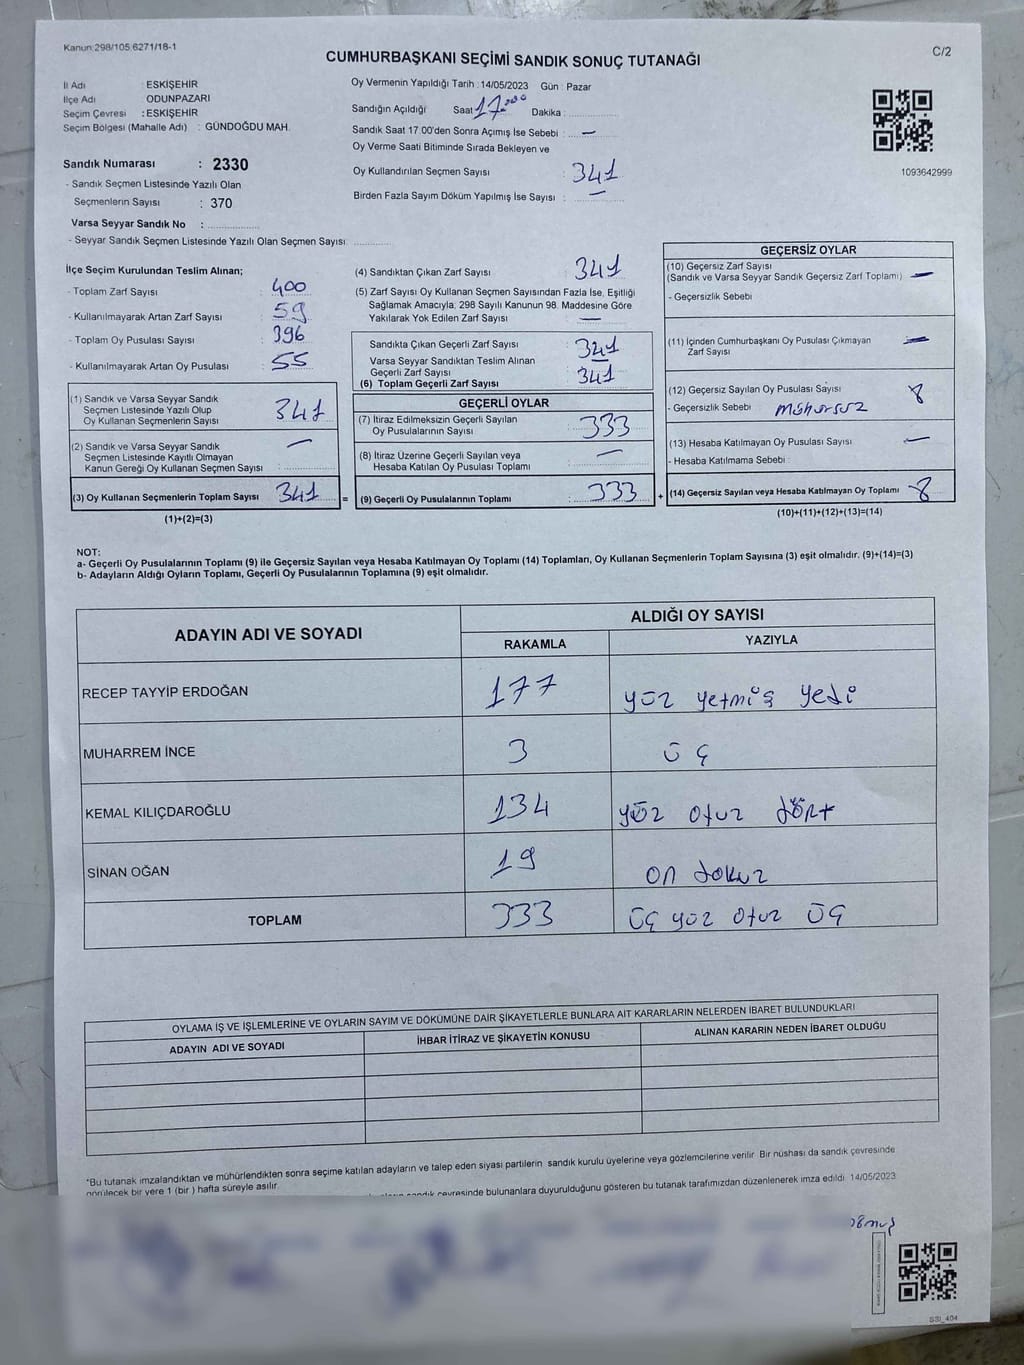 Kanun:298/105,6271/18-1
C/2
CUMHURBAŞKANI SEÇİMİ SANDIK SONUÇ TUTANAĞI
İl Adı : ESKİŞEHİR
İlçe Adı : ODUNPAZARI
Seçim Çevresi : ESKİŞEHİR
Seçim Bölgesi (Mahalle Adı) : GÜNDOĞDU MAH.
Sandık Numarası : 2330
- Sandık Seçmen Listesinde Yazılı Olan
Seçmenlerin Sayısı : 370
Varsa Seyyar Sandık No :
- Seyyar Sandık Seçmen Listesinde Yazılı Olan Seçmen Sayısı:
Oy Vermenin Yapıldığı Tarih : 14/05/2023 Gün : Pazar
Sandığın Açıldığı Saat 17.00 Dakika :
Sandık Saat 17.00'den Sonra Açımış İse Sebebi : —
Oy Verme Saati Bitiminde Sırada Bekleyen ve
Oy Kullandırılan Seçmen Sayısı : 341
Birden Fazla Sayım Döküm Yapılmış İse Sayısı : —
1093642999
İlçe Seçim Kurulundan Teslim Alınan;
- Toplam Zarf Sayısı : 400
- Kullanılmayarak Artan Zarf Sayısı : 59
- Toplam Oy Pusulası Sayısı : 396
- Kullanılmayarak Artan Oy Pusulası : 55
(1) Sandık ve Varsa Seyyar Sandık
Seçmen Listesinde Yazılı Olup
Oy Kullanan Seçmenlerin Sayısı : 341
(2) Sandık ve Varsa Seyyar Sandık
Seçmen Listesinde Kayıtlı Olmayan
Kanun Gereği Oy Kullanan Seçmen Sayısı : —
(3) Oy Kullanan Seçmenlerin Toplam Sayısı : 341 =
(1)+(2)=(3)
(4) Sandıktan Çıkan Zarf Sayısı : 341
(5) Zarf Sayısı Oy Kullanan Seçmen Sayısından Fazla İse, Eşitliği
Sağlamak Amacıyla, 298 Sayılı Kanunun 98. Maddesine Göre
Yakılarak Yok Edilen Zarf Sayısı : —
Sandıkta Çıkan Geçerli Zarf Sayısı : 341
Varsa Seyyar Sandıktan Teslim Alınan
Geçerli Zarf Sayısı : —
(6) Toplam Geçerli Zarf Sayısı : 341
GEÇERLİ OYLAR
(7) İtiraz Edilmeksizin Geçerli Sayılan
Oy Pusulalarının Sayısı : 333
(8) İtiraz Üzerine Geçerli Sayılan veya
Hesaba Katılan Oy Pusulası Toplamı : —
(9) Geçerli Oy Pusulalarının Toplamı : 333 +
GEÇERSİZ OYLAR
(10) Geçersiz Zarf Sayısı
(Sandık ve Varsa Seyyar Sandık Geçersiz Zarf Toplamı) : —
- Geçersizlik Sebebi :
(11) İçinden Cumhurbaşkanı Oy Pusulası Çıkmayan
Zarf Sayısı : —
(12) Geçersiz Sayılan Oy Pusulası Sayısı : 8
- Geçersizlik Sebebi : mühürsüz
(13) Hesaba Katılmayan Oy Pusulası Sayısı : —
- Hesaba Katılmama Sebebi :
(14) Geçersiz Sayılan veya Hesaba Katılmayan Oy Toplamı : 8
(10)+(11)+(12)+(13)=(14)
NOT:
a- Geçerli Oy Pusulalarının Toplamı (9) ile Geçersiz Sayılan veya Hesaba Katılmayan Oy Toplamı (14) Toplamları, Oy Kullanan Seçmenlerin Toplam Sayısına (3) eşit olmalıdır. (9)+(14)=(3)
b- Adayların Aldığı Oyların Toplamı, Geçerli Oy Pusulalarının Toplamına (9) eşit olmalıdır.
ADAYIN ADI VE SOYADI
ALDIĞI OY SAYISI
RAKAMLA YAZIYLA
RECEP TAYYİP ERDOĞAN 177 yüz yetmiş yedi
MUHARREM İNCE 3 üç
KEMAL KILIÇDAROĞLU 134 yüz otuz dört
SİNAN OĞAN 19 on dokuz
TOPLAM 333 üç yüz otuz üç
OYLAMA İŞ VE İŞLEMLERİNE VE OYLARIN SAYIM VE DÖKÜMÜNE DAİR ŞİKAYETLERLE BUNLARA AİT KARARLARIN NELERDEN İBARET BULUNDUKLARI
ADAYIN ADI VE SOYADI İHBAR İTİRAZ VE ŞİKAYETİN KONUSU ALINAN KARARIN NEDEN İBARET OLDUĞU
*Bu tutanak imzalandıktan ve mühürlendikten sonra seçime katılan adayların ve talep eden siyasi partilerin sandık kurulu üyelerine veya gözlemcilerine verilir. Bir nüshası da sandık çevresinde
görülecek bir yere 1 (bir) hafta süreyle asılır.
sandık çevresinde bulunanlara duyurulduğunu gösteren bu tutanak tarafımızdan düzenlenerek imza edildi. 14/05/2023
SSI_404